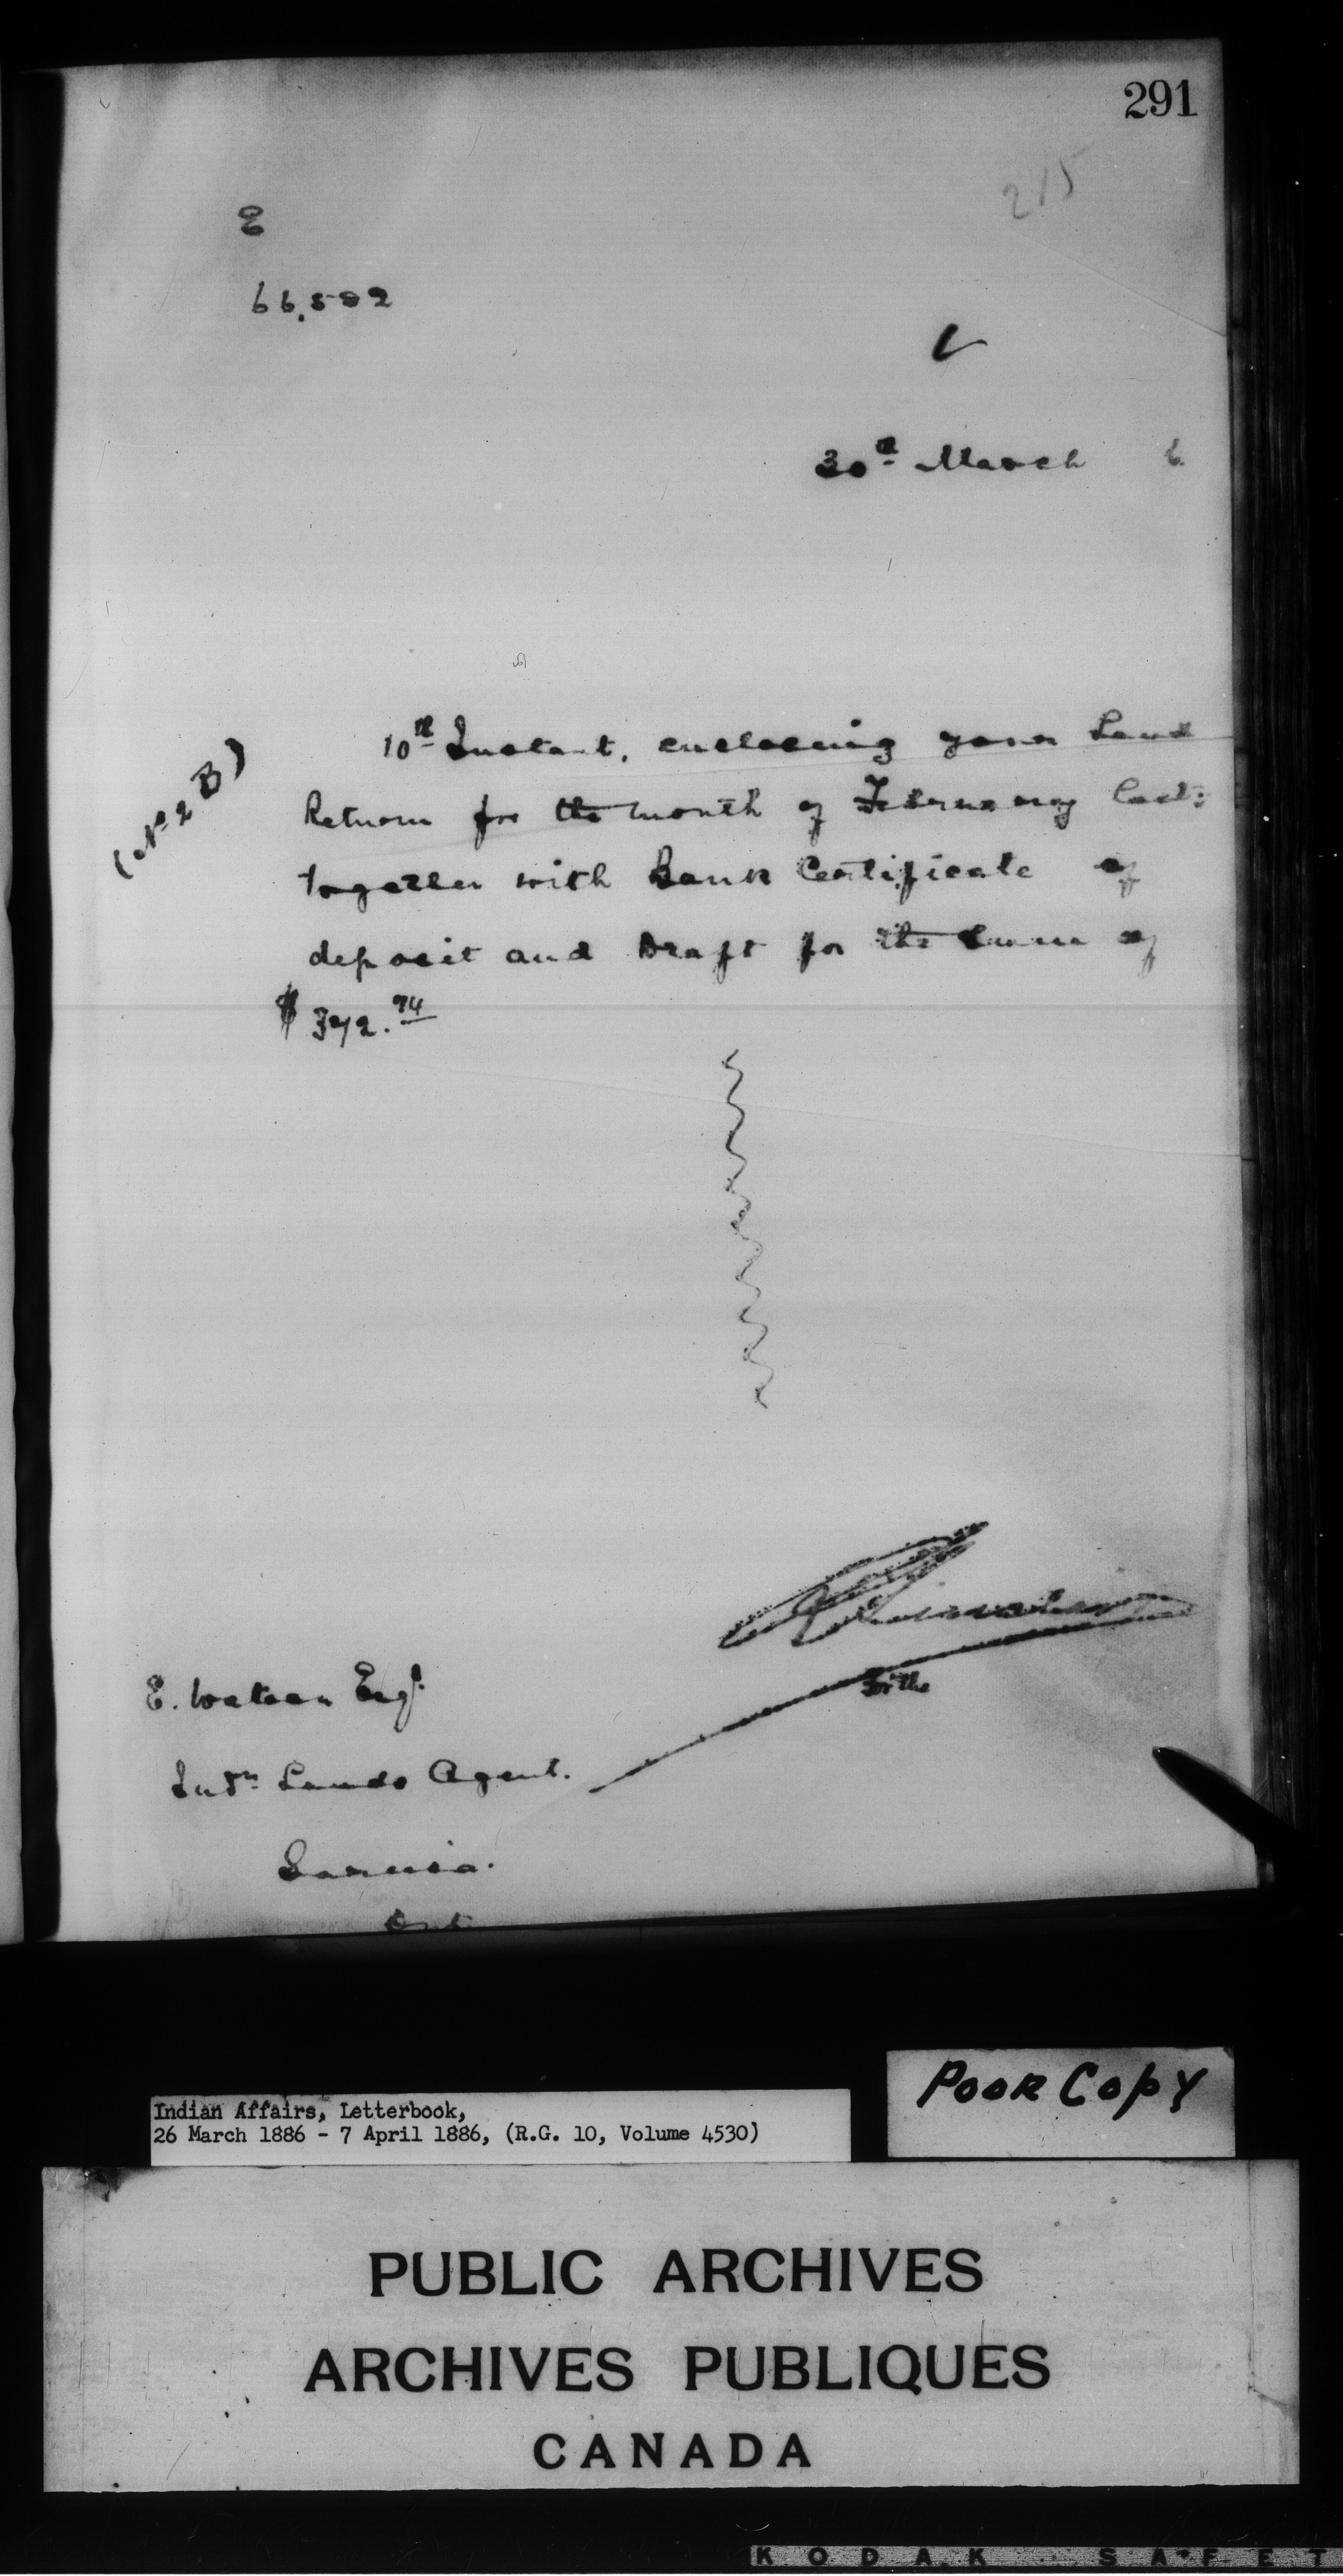 291
215
E
66,582
30th March 6
(No 2 B)
10th Instant, enclosing your Land
Return for the month of February last:
together with Bank Certificate of
deposit and Draft for the sum of
$ 372.94
E. Watson Esqr.
Indn Lands Agent.
Sarnia.
Ont
Poor Copy
Indian Affairs, Letterbook,
26 March 1886 - 7 April 1886, (R.G. 10, Volume 4530)
PUBLIC ARCHIVES
ARCHIVES PUBLIQUES
CANADA
KODAK SAFET